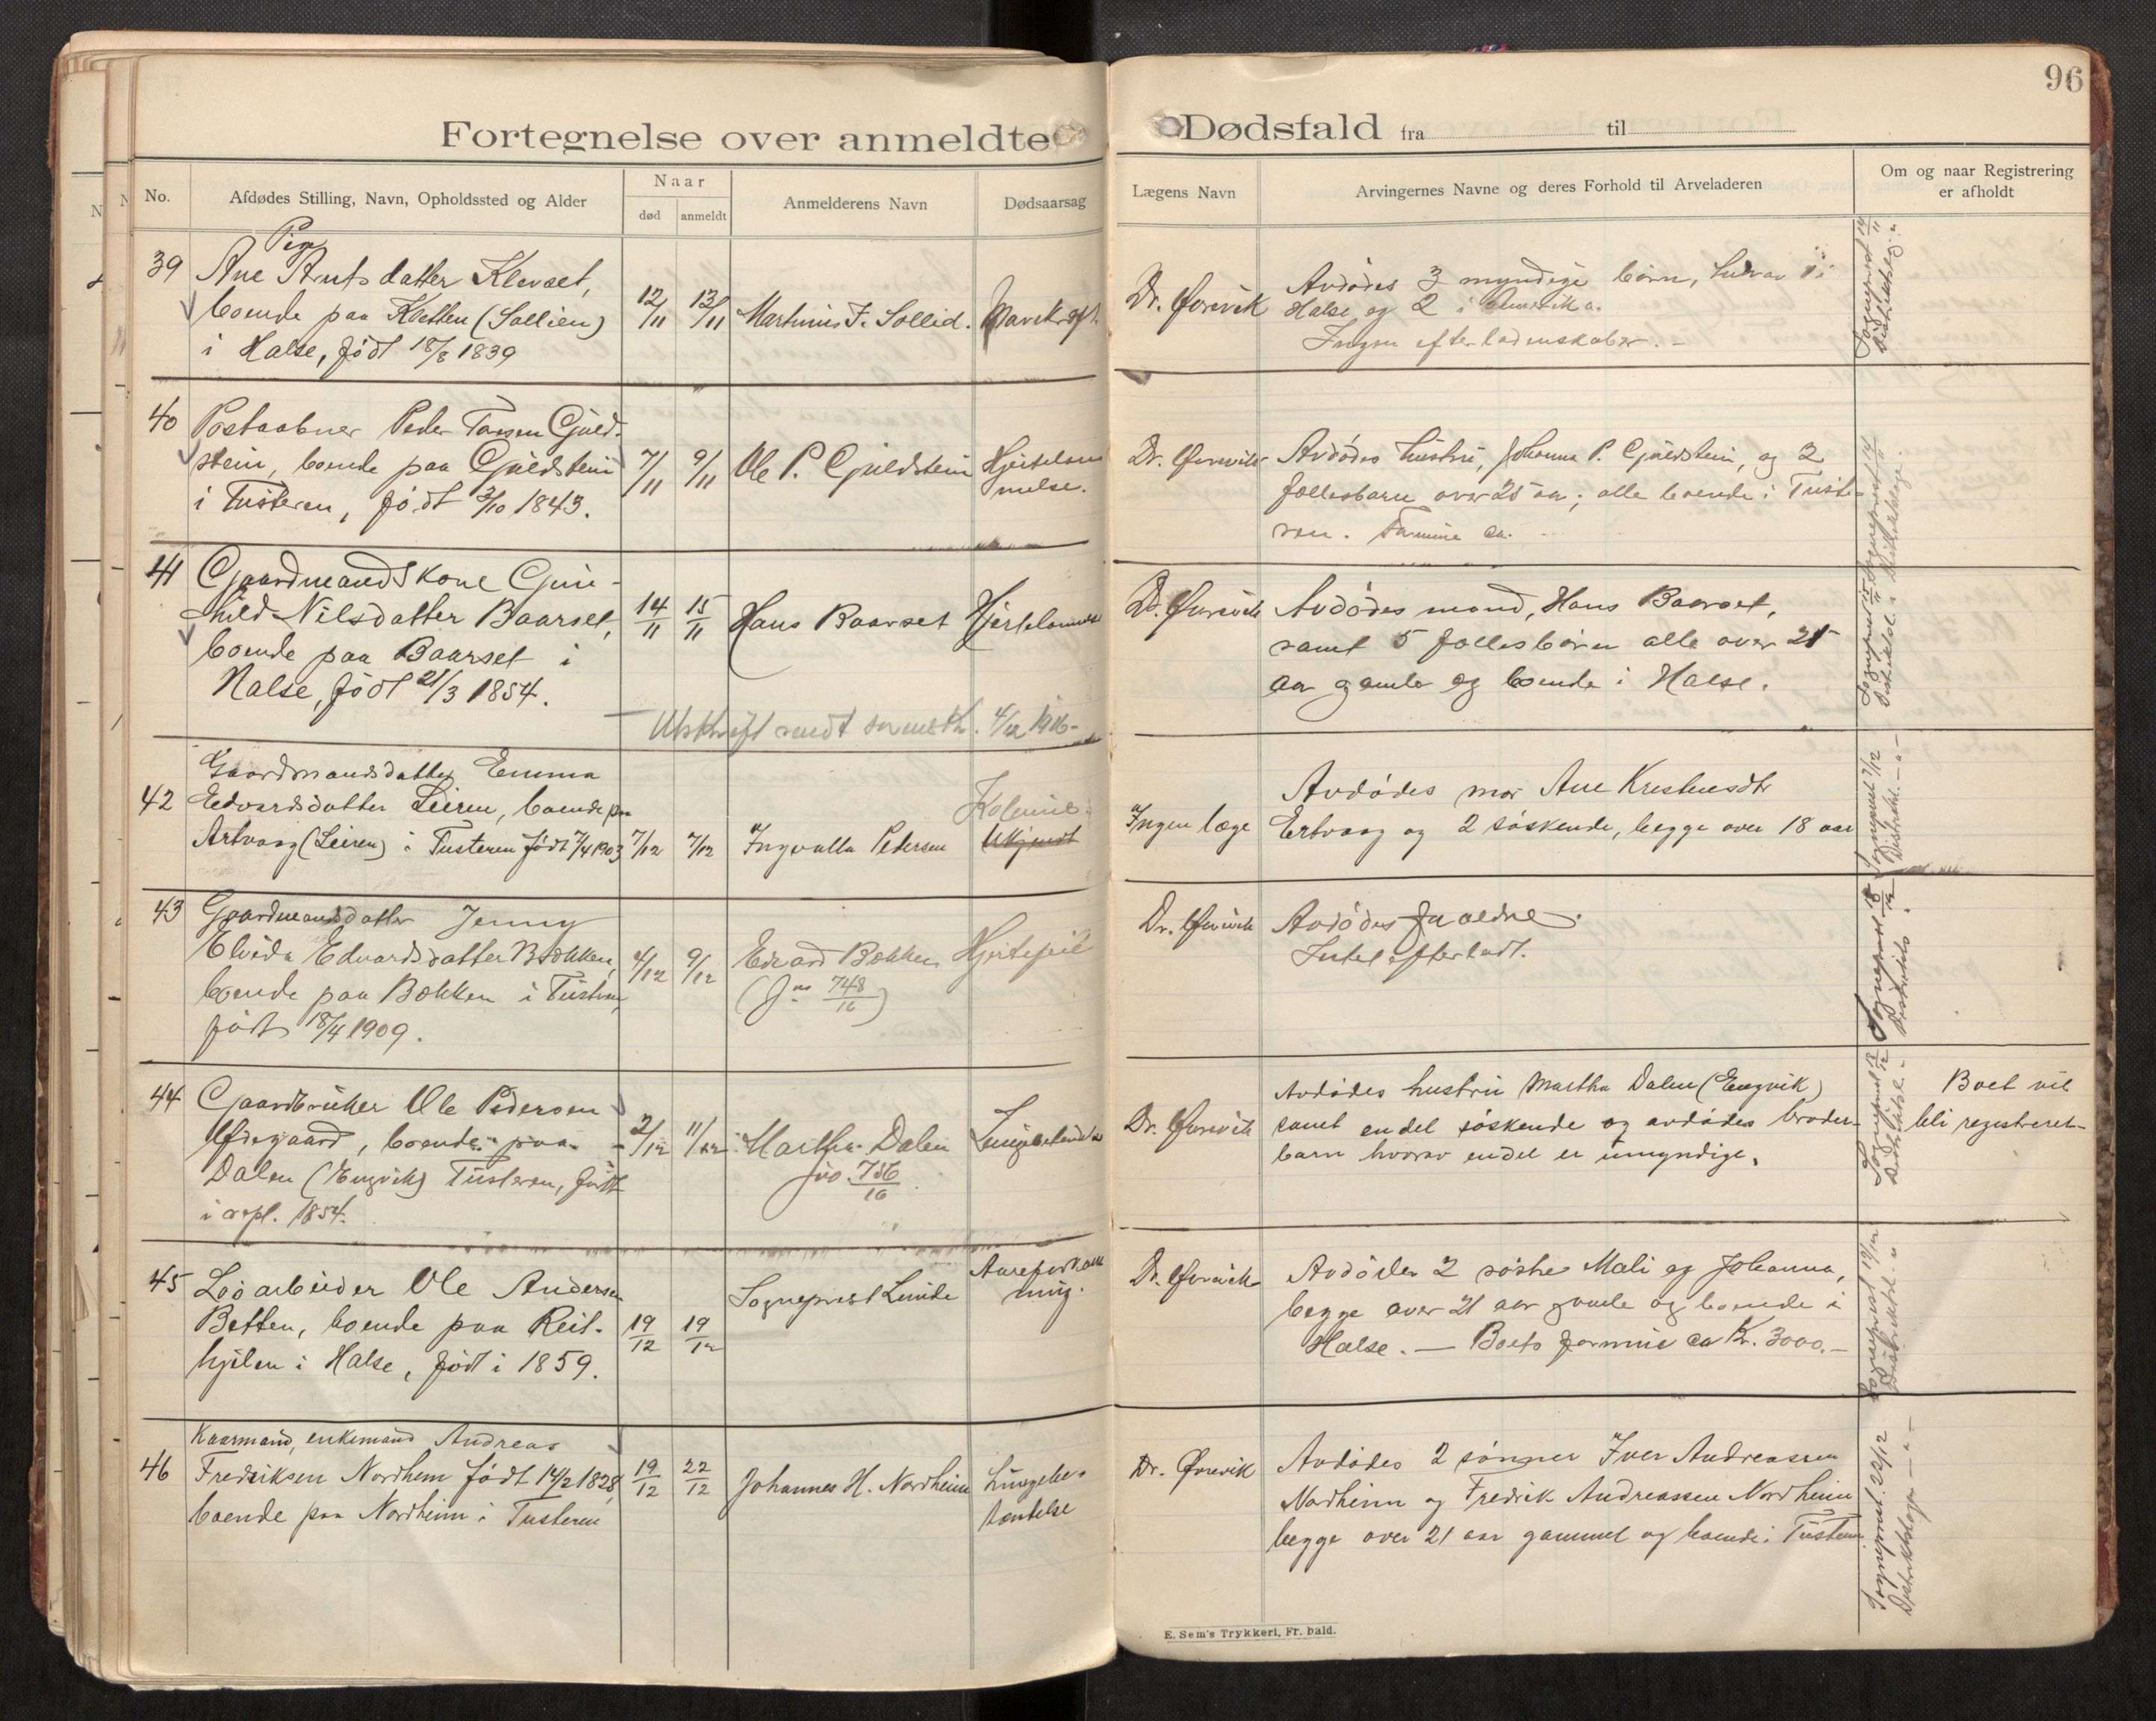 96
Fortegnelse over anmeldte Dødsfald fra til
No.
Afdødes Stilling, Navn, Opholdssted og Alder
Naar
død
anmeldt
Anmelderens Navn
Dødsaarsag
Lægens Navn
Arvingernes Navne og deres Forhold til Arveladeren
Om og naar Registrering
er afholdt
39
Pige
Ane Knutsdatter Klevset,
boende paa Kletten (Sollien)
i Halse, født 18/8 1839
12/11
13/11
Martinus J. Sollid.
Dr. Ørevik
Avdødes 3 myndige børn, hvorav 1 i
Halse og 2 i Amerika.
Ingen efterladenskaber. -
Sogneprest 14/11
40
Postaabner Peder Larsen Gjuld-
stein, boende paa Gjuldstein
i Tusteren, født 2/10 1843.
7/11
9/11
Ole P. Gjuldstein
Hjertelam
melse.
Dr. Ørevik
Avdødes hustru, Johanna P. Gjuldstein, og 2
fællesbarn over 25 aar; alle boende i Tuste-
ren. Formue ca.
Sogneprest 14/11
41
Gaardmandskone Gun-
hild Nilsdatter Baarset,
boende paa Baarset i
Halse, født 21/3 1854.
14/11
15/11
Hans Baarset
Hjertelammelse
Dr. Ørevik
Avdødes mand, Hans Baarset,
samt 5 fællesbørn alle over 21
aar gamle og boende i Halse.
Sogneprest 15/11
Utskrift sendt 4/12 1916-
42
Gaardmandsdatter Emma
Edvardsdatter Leiren, boende paa
Artvaag (Leiren) i Tusteren født 7/4 1903
7/12
7/12
Ingvalla Pedersen
Ukjendt
Ingen læge
Avdødes mor Ane Kristensdtr
Ertvaag og 2 søskende, begge over 18 aar
Sogneprest 7/12
43
Gaardmandsdatter Jenny
Elvida Edvardsdatter Bækken,
boende paa Bækken i Tusteren,
født 18/4 1909.
4/12
9/12
Edvard Bækken
(Jno 748/16)
Hjertefeil
Dr. Ørevik
Avdødes forældre.
Intet efterladt.
Sogneprest 18/12
44
Gaardbruker Ole Pedersen
Ødegaard, boende paa
Dalen (Engvik) Tusteren, født
i april 1854.
2/12
11/12
Martha Dalen
Jno. 756/16
Lungebetændelse
Dr. Ørevik
Avdødes hustru Martha Dalen (Engvik)
samt endel søskende og avdødes broder-
barn hvorav endel er umyndige.
Boet vil
bli registreret-
Sogneprest 18/12
45
Løsarbeider Ole Andersen
Betten, boende paa Reit-
hjelen i Halse, født i 1859.
19/12
19/12
Sogneprest Linde
Aareforkalk
ning.
Dr. Ørevik
Avdødes 2 søstre Mali og Johanna,
begge over 21 aar gamle og boende i
Halse. — Boets formue ca Kr. 3000.-
Sogneprest 19/12
46
Kaarmand, enkemand Andreas
Fredriksen Nordheim født 14/2 1828,
boende paa Nordheim i Tusteren
19/12
22/12
Johannes H. Nordheim
Lungebe-
tændelse
Dr. Ørevik
Avdødes 2 sønner Iver Andreassen
Nordheim og Fredrik Andreassen Nordheim
begge over 21 aar gammel og boende i Tusteren
Sogneprest. 22/12
Distriktslægen
E. Sem's Trykkeri, Fr. hald.